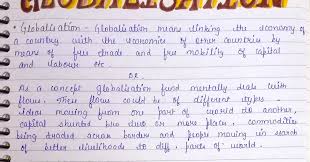 GLOBALISATION
• Globalisation - Globalisation means linking the economy of
a country with the economies of other countries by
means of free trade and free mobility of capital
and labour etc.
OR
As a concept Globalisation fund mentally deals with
flows. These flows could be of different types
ideas moving from one part of world to another,
capital shunted b/w two or more places, commodities
being traded across borders and people moving in search
of better livelihoods to diff. parts of world.